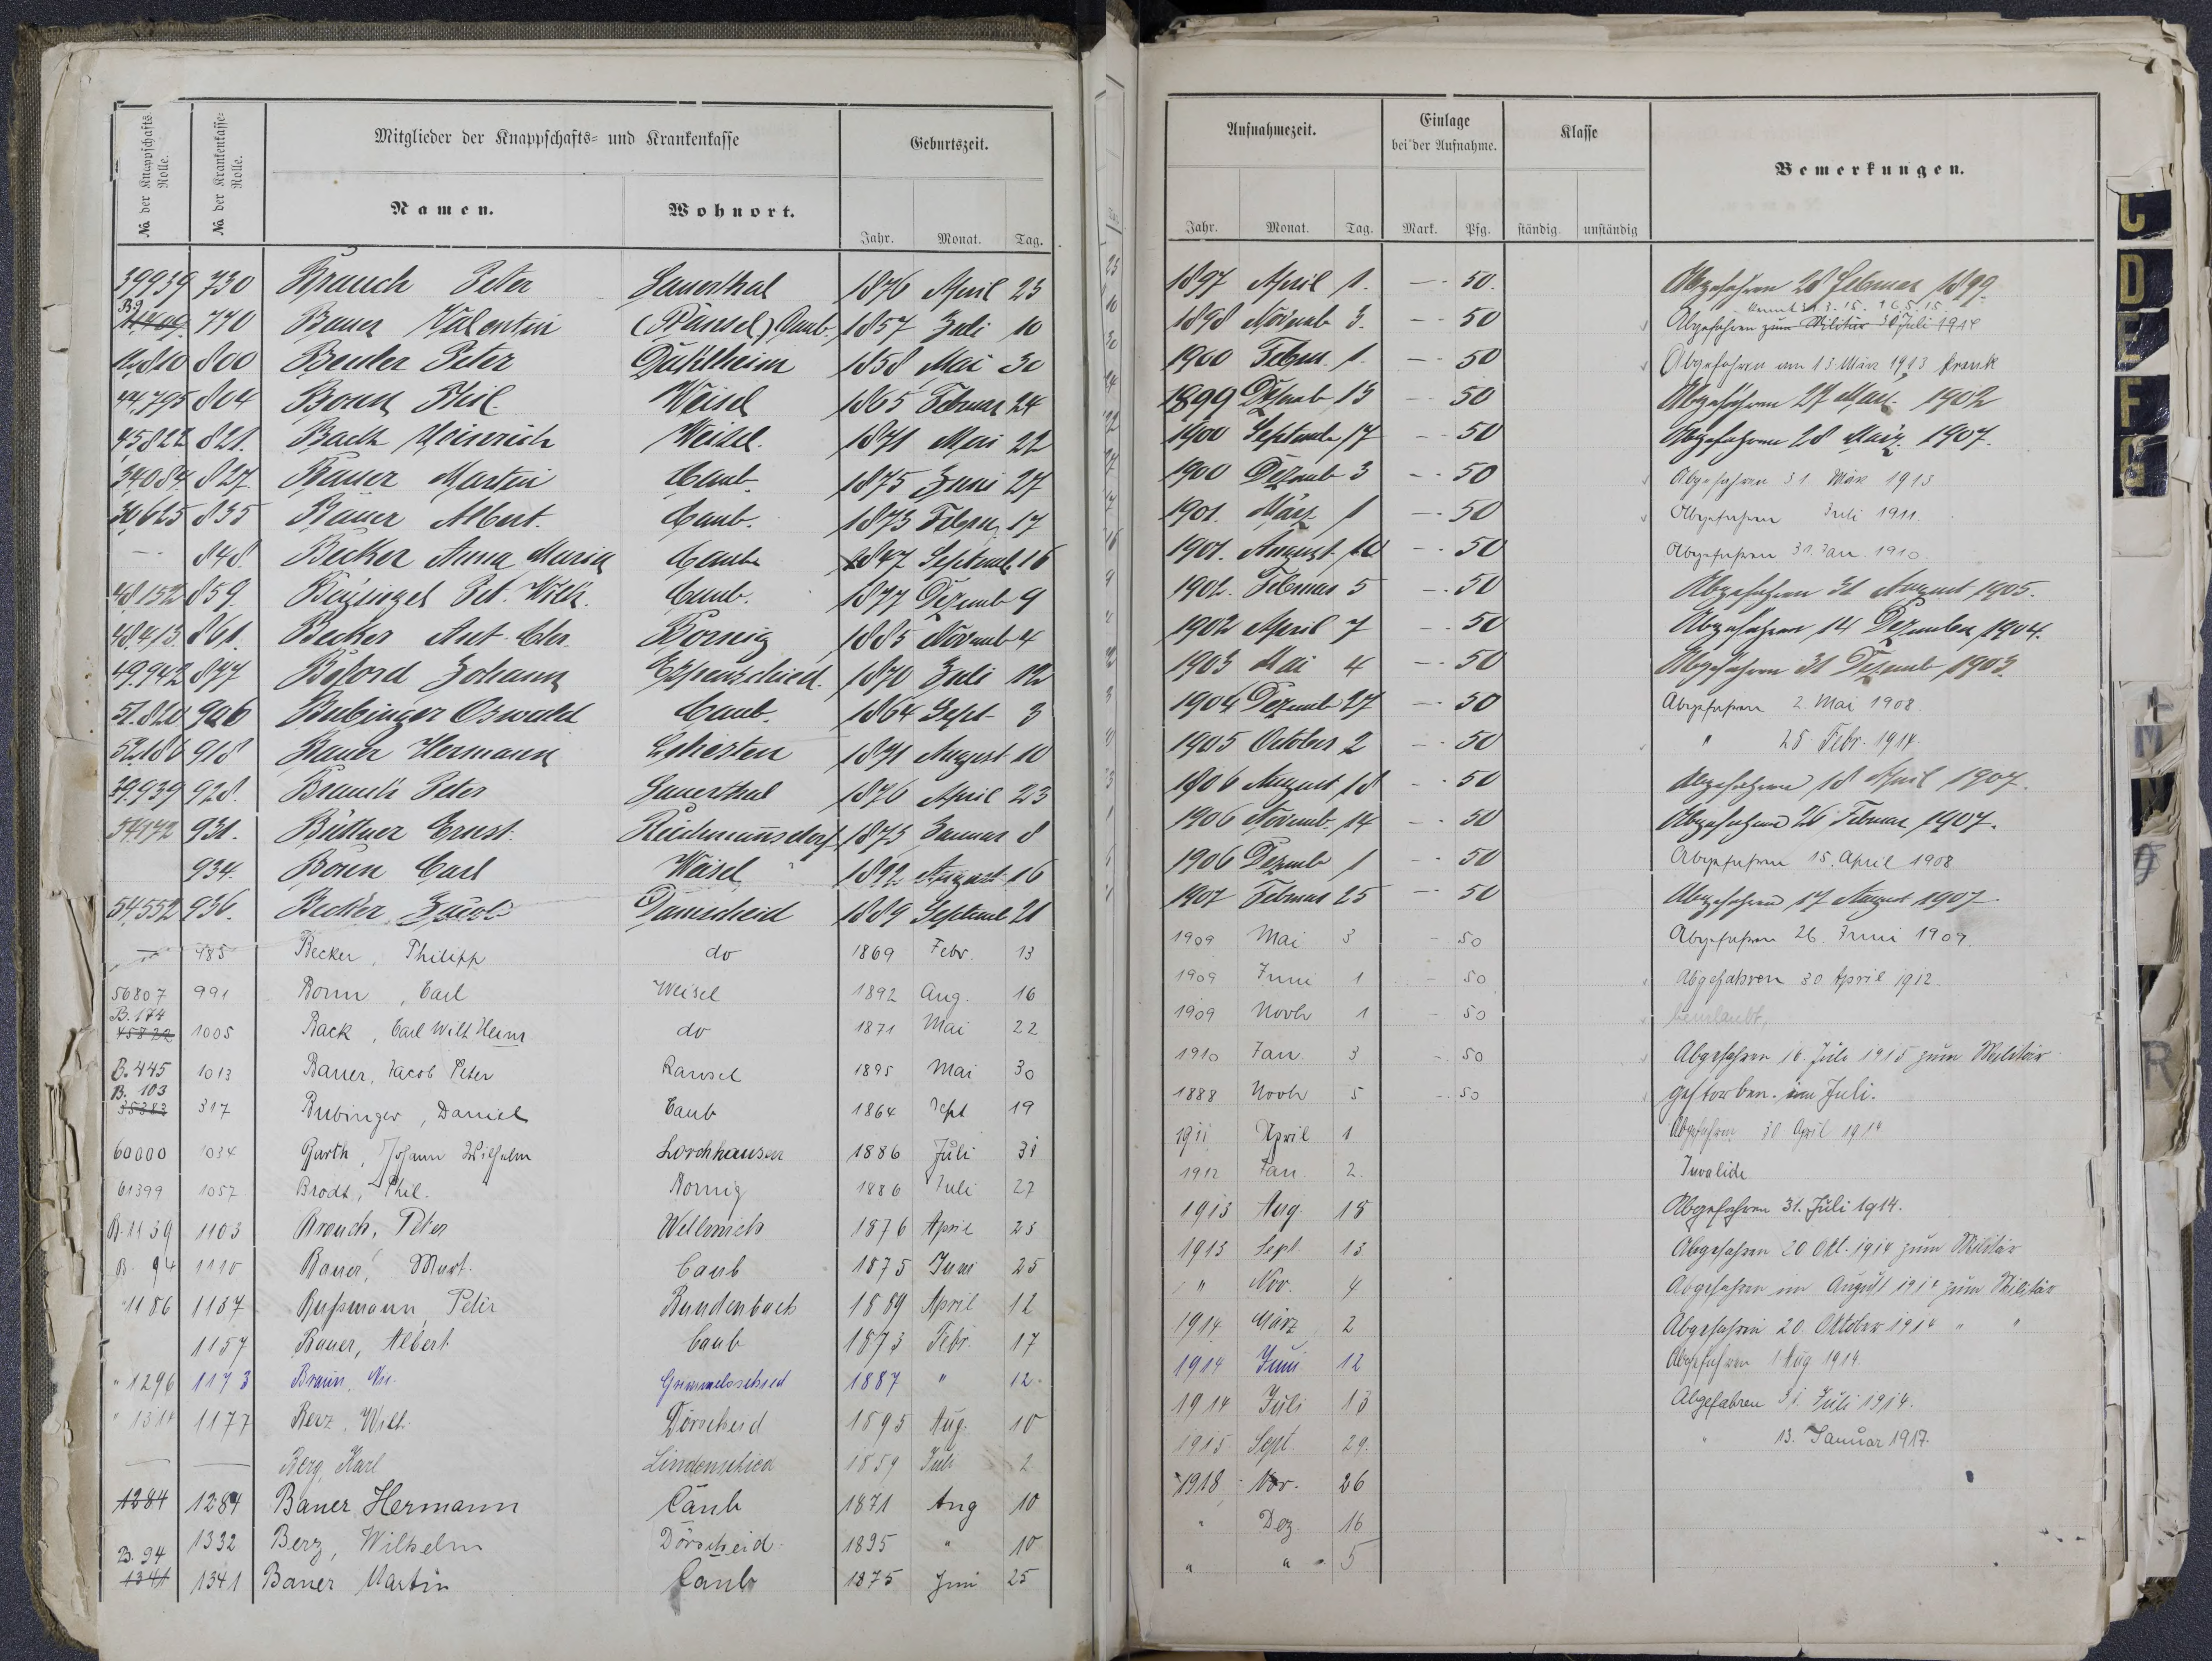 № der Knappschafts-Rolle.
№ der Krankenkasse-Rolle.
Mitglieder der Knappschafts- und Krankenkasse
Namen.
Wohnort.
Geburtszeit.
Jahr. Monat. Tag.
39939 730 Brauch Peter Sauerthal 1876 April 23
B9 770 Bauer Valentin (Ränsel) Caub. 1857 Juli 10
800 Bender Peter 1858 Mai 30
44,795 804 Bonn Phil. Weisel 1865 Februar 24
45822 821. Back Heinrich Weisel. 1871 Mai 22
34084 827. Bauer Martin Caub. 1875 Juni 27
30625 835 Bauer Albert. Caub. 1873 Febru. 17
-- 848. Becker Anna Maria Caub 1847 Septemb. 16
48152 859. Pet. Wilh. Caub. 1877 Dezemb 9
48413. 861. Becker Ant. Chr. Bornig 1885 Novemb 4
49942 877 Johann Espenschied. 1870 Juli 12
51.820 906 Bubinger Oswald Caub. 1864 Sept 3
918 Bauer Hermann Lehesten 1871 August 10
39.939 928. Brauch Peter Sauerthal 1876 April 23
54172 931. Büttner Ernst Reichmannsdorf 1873 Januar 8
934. Bonn Carl Weisel 1892 August 16
54,552 936. Becker Jacob Dauscheid 1889 Septemb 21
— 985 Becker, Philipp do 1869 Febr. 13
56807 991 Bonn, Carl Weisel 1892 Aug. 16
B. 174
45822 1005 Back, Carl Wilh Heinr. do 1871 Mai 22
B. 445 1013 Bauer, Jacob Peter Ransel 1895 Mai 30
B. 103
35383 317 Bubinger, Daniel Caub 1864 Sept 19
60000 1034 Garth, Johann Wilhelm Lorchhausen 1886 Juli 31
61399 1057 Brodt, Phil. Bornig 1886 Juli 27
B. 1139 1103 Brauch, Peter Wellmich 1876 April 23
B. 94 1110 Bauer, Mart. Caub 1875 Juni 25
1186 1137 Bußmann, Peter Bundenbach 1889 April 12
1157 Bauer, Albert Caub 1873 Febr. 17
" 1296 1173 Braun, Nic. 1887 " 12.
" 1314 1177 Berz, Wilh. Dörscheid 1895 Aug. 10
— — Berg, Karl Lindenschied 1859 Juli 2
1284 1284 Bauer Hermann Caub 1871 Aug 10
1332 Berz, Wilhelm Dörscheid 1895 " 10
B. 94
1341 1341 Bauer Martin Caub 1875 Juni 25
Aufnahmezeit.
Einlage bei der Aufnahme.
Klasse
Bemerkungen.
Jahr. Monat. Tag. Mark. Pfg. ständig unständig
1897 April 1. -- 50. Abgefahren 28 Februar 1899.
1898 Novemb 3. -- 50 Abgefahren zum Militär 30 Juli 1914
1900 Febru. 1. -- 50 Abgefahren am 13 März 1913 krank
1899 Dezemb 13 -- 50 Abgefahren 27 März 1902
1900 Septemb 17 -- 50 Abgefahren 28 März 1907.
1900 Dezemb 3 -- 50 Abgefahren 31. März 1913
1901. März 1 -- 50 Abgefahren Juli 1911.
1901. August 10 -- 50 Abgefahren 31. Jan. 1910.
1902. Februar 5 -- 50 Abgefahren 31 August 1905.
1902 April 7 -- 50 Abgefahren 14 Dezember 1904.
1903 Mai 4 -- 50 Abgefahren 31 Dezemb 1903.
1904 Dezemb 27 -- 50 Abgefahren 2. Mai 1908.
1905 October 2 -- 50 " 28. Febr. 1914.
1906 August 18 -- 50 Abgefahren 18 April 1907.
1906 Novemb. 14 -- 50 Abgefahren 26 Februar 1907.
1906 Dezemb 1 -- 50 Abgefahren 15. April 1908.
1907 Februar 25 -- 50 Abgefahren 17 August 1907
1909 Mai 3 - 50 Abgefahren 26. Juni 1909.
1909 Juni 1 - 50 Abgefahren 30 April 1912.
1909 Novbr 1 - 50 beurlaubt,
1910 Jan. 3 - 50 Abgefahren 16. Juli 1915 zum Militär
1888 Novbr 5 - 50 gestorben im Juli.
1911 April 1 Abgefahren 30 April 1914
1912 Jan. 2. Invalide
1913 Aug. 18 Abgefahren 31. Juli 1914.
1913 Sept. 13 Abgefahren 20 Okt. 1914 zum Militär
" Nov. 4 Abgefahren im August 1914 zum Militär
1914 März 2 Abgefahren 20. Oktober 1914 " "
1914 Juni 12 Abgefahren 1 Aug 1914.
1914 Juli 13 Abgefahren 31. Juli 1914.
1915 Sept. 29. " 13. Januar 1917.
1918 Nov. 26
" Dez 16
" " 5
C
D
E
F
G
M
N
R